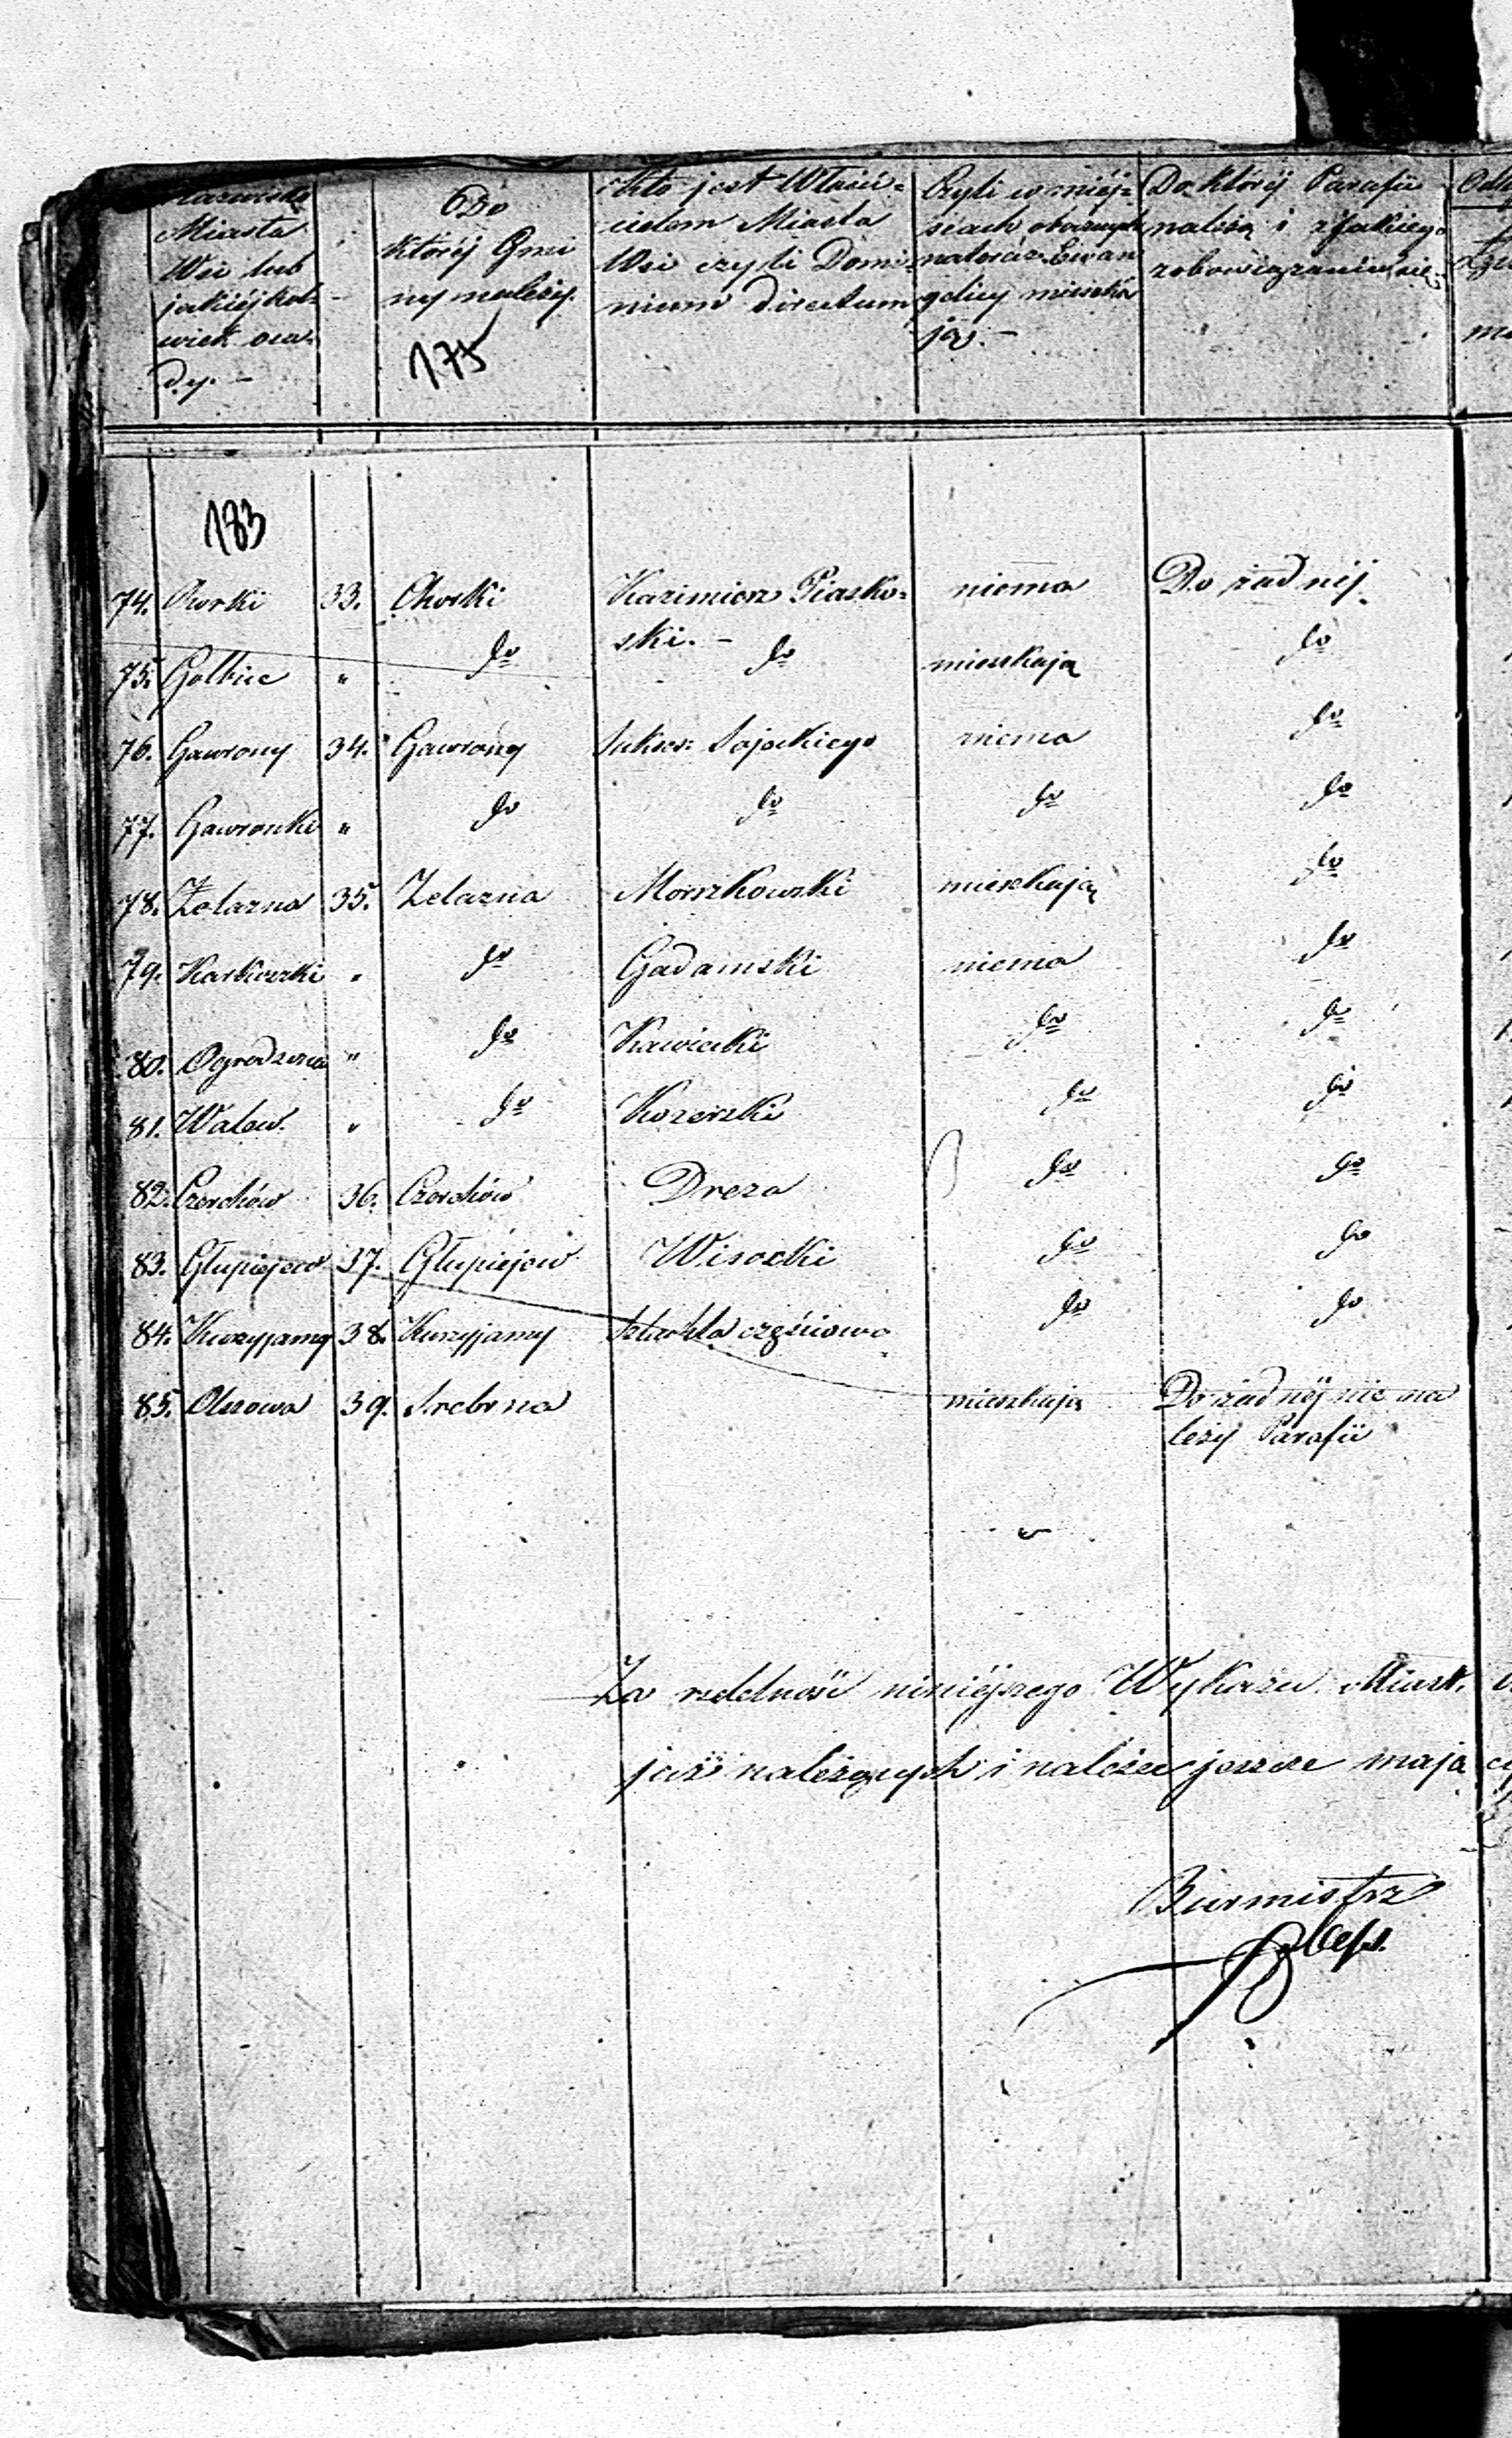 Nazwisko
Miasta
Wsi lub
jakiéjkol-
wiek osa-
dy. -
Do
któréj Gmi
ny należy.
175
Kto jest Właści-
cielem Miasta
Wsi czyli Domi-
nium Directum
Czyli w miéj-
scach
Ewan
gelicy mieszka
ją. -
Do któréj Parafii
należą i z jakiego
zobowiązania się
183
74. Chorki 33. Chorki Kazimierz Piasko- niema Do żadnéj.
ski. -
75. Golbice " do do mieszkają do
76. Gawrony 34. Gawrony Sukces: Sojeckiego niema do
77. Gawronki " do do do do
78. Żelazna 35. Zelazna Morszkowski mieszkają do
79. " do Gadamski niema do
80. Ogrodzona " do Kawiecki do do
81. Walew. " do Kozerski do do
82. Czerchów 36. Czerchów Dreza do do
83. Głupiejew 37. Głupiejew Wisocki do do
84. Kurzyjamy 38. Kurzyjamy Szlachta częściowa do do
85. Olszowa 39. Srebrna mieszkają Do żadnéj nie na
leży Parafii
Za rzetelność niniéjszego Wykazu Miast,
już należących i należeć jeszcze mają
Burmistrz